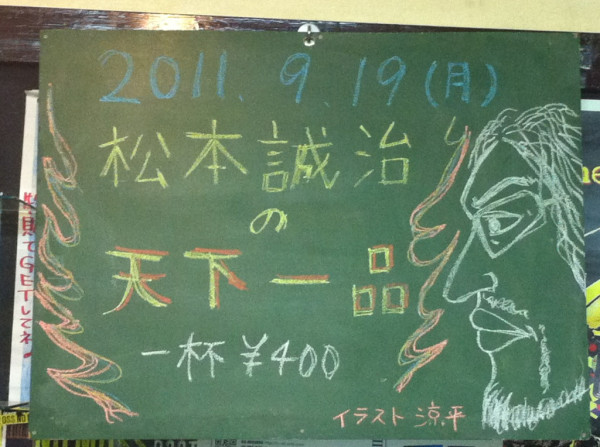 2011. 9. 19 (月)
松本誠治
の
天下一品
一杯 ¥400
イラスト 涼平